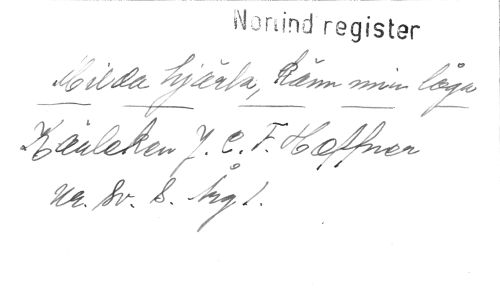 Norlind register
Milda hjärta, känn min låga
Kärleken J. C. F. Hæffner
ur. Sv. S. Årg 1.